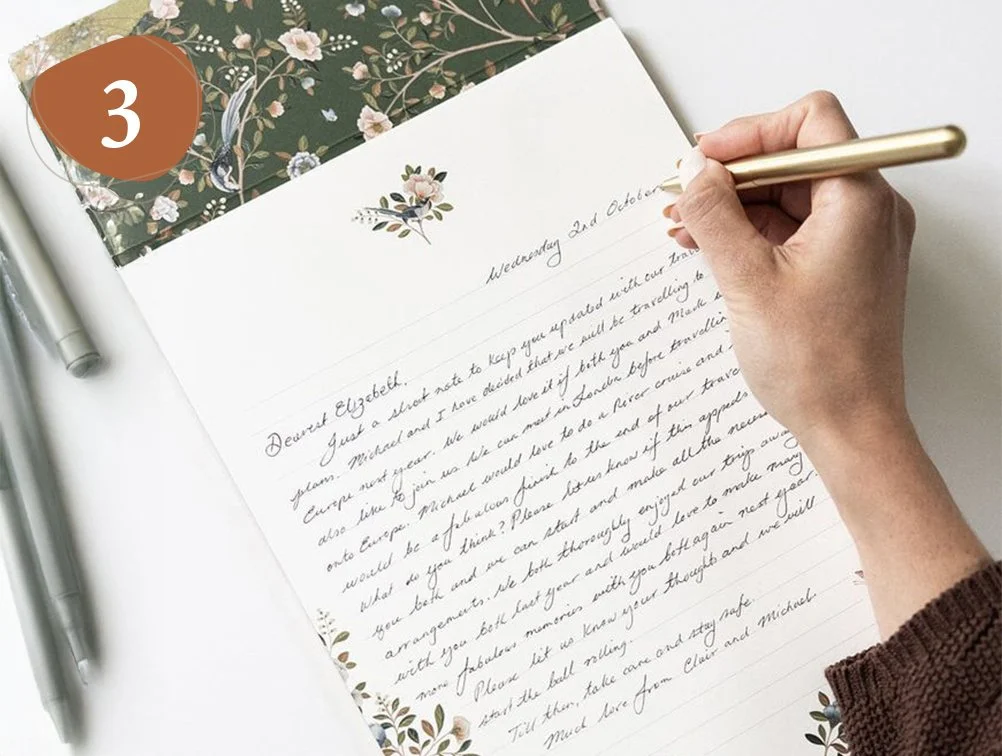 3
Wednesday 2nd October
Dearest Elizabeth,
Just a short note to keep you updated with our
plans. Michael and I have decided that we will be travelling to
Europe next year. We would love it if both you and Mark
also like to join us. We can meet in London before travelling
onto Europe. Michael would love to do a River cruise and
would be a fabulous finish to the end of our
What do you think? Please let us know if this appeals
you both and we can start and make all the
arrangements. We both thoroughly enjoyed our trip away
with you both last year and would love to make many
more fabulous memories with you both again next year.
Please let us know your thoughts and we will
start the ball rolling.
Till then, take care and stay safe.
Much love from Clair and Michael.